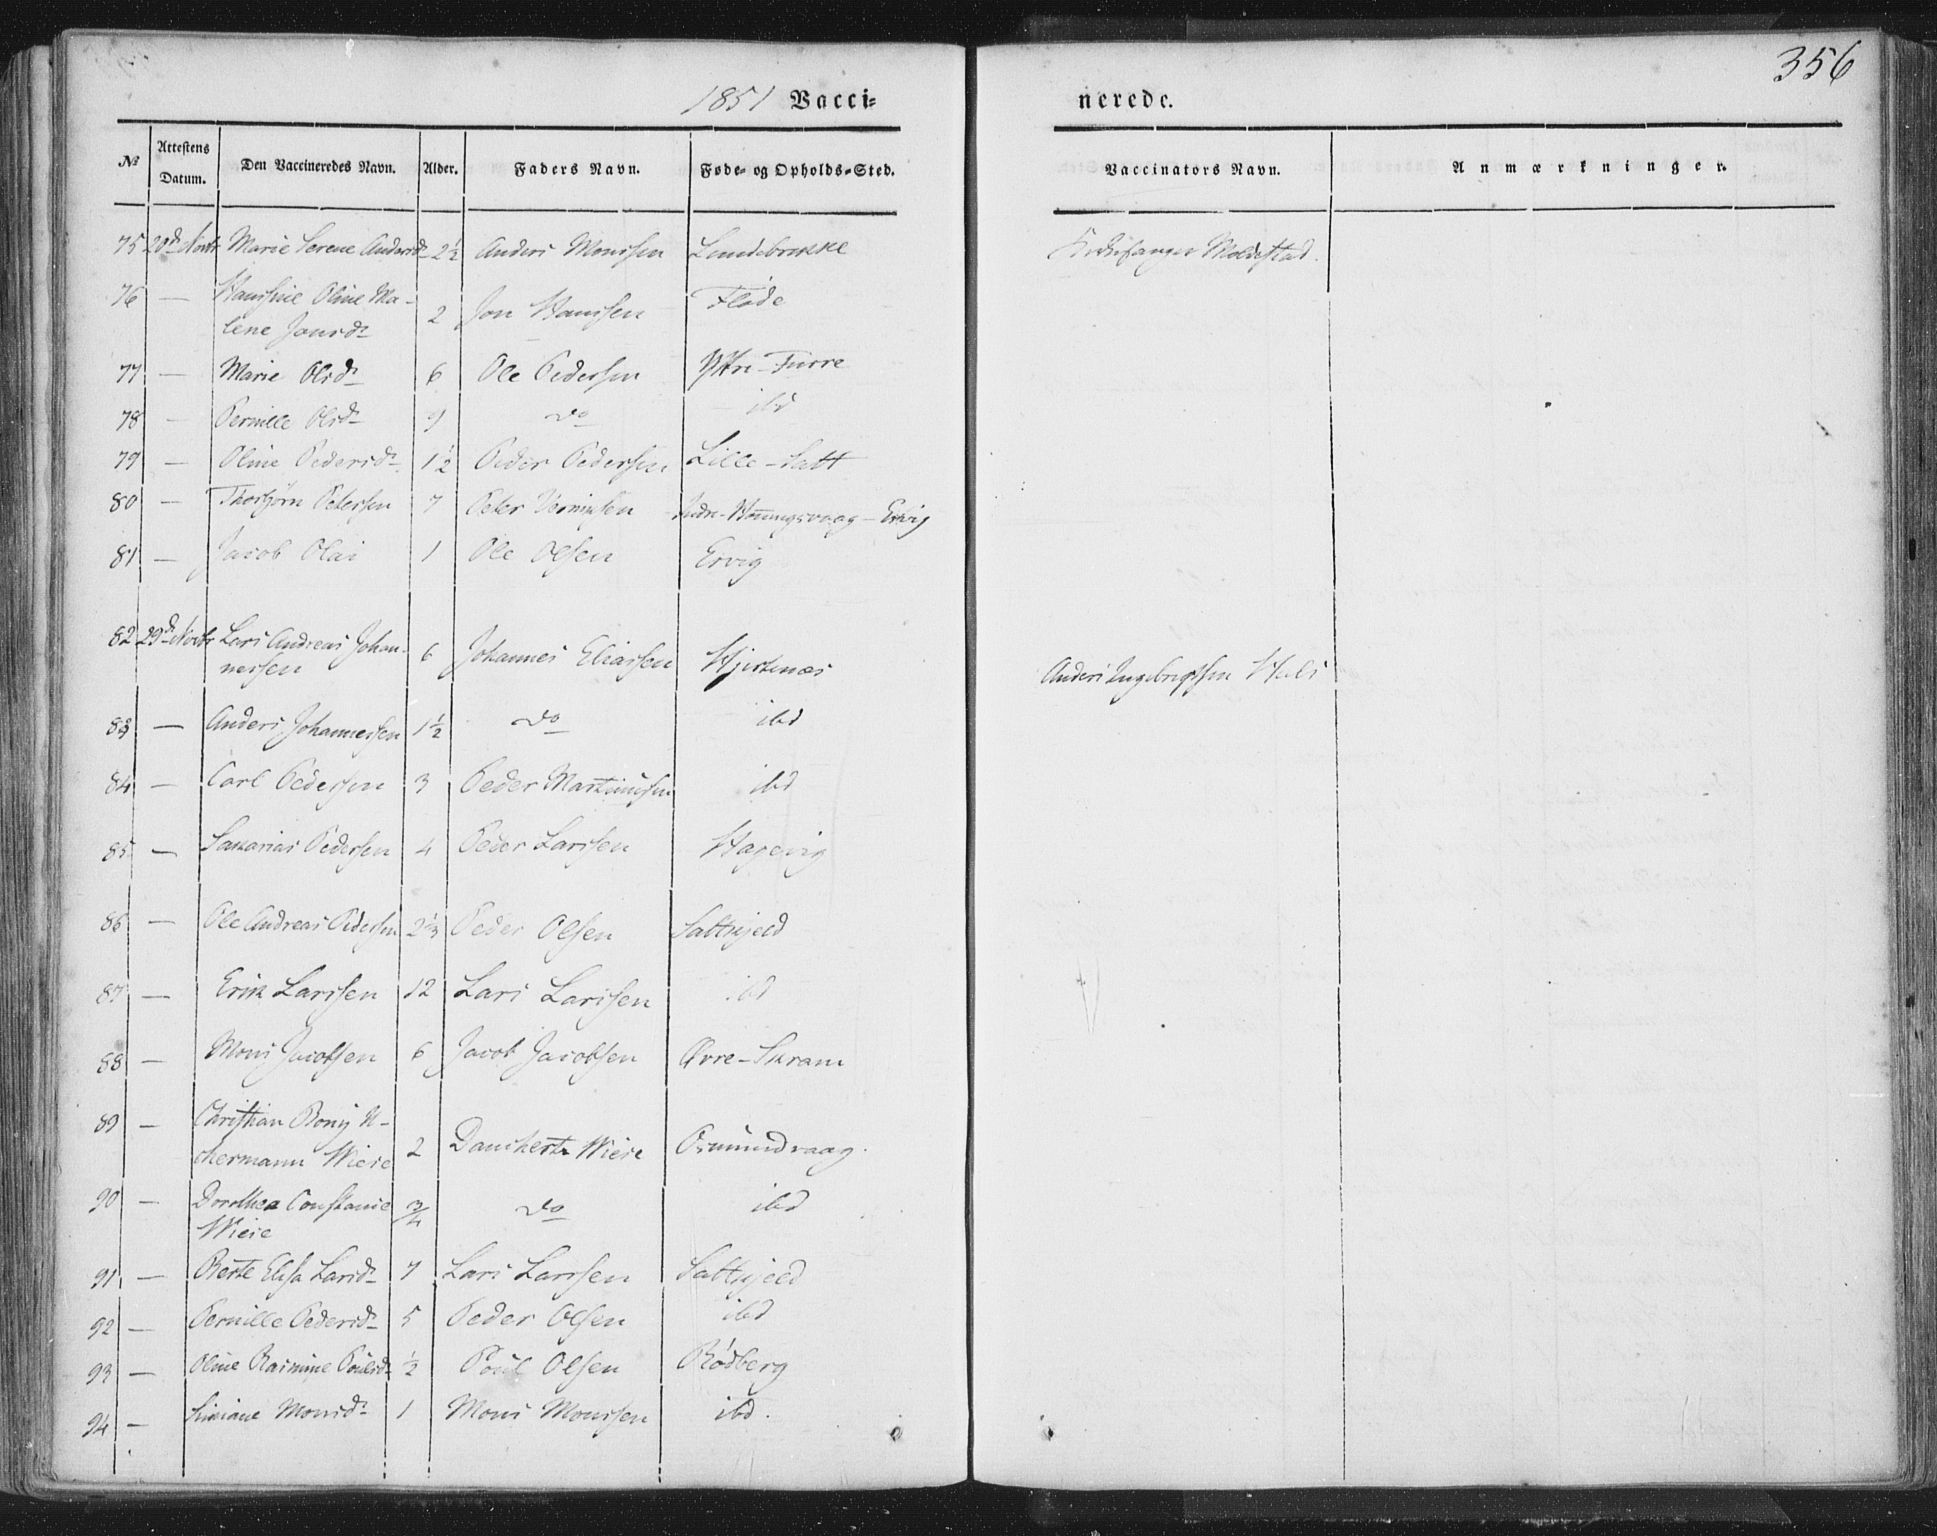 356
1851 Vacci=
nerede.
No Attestens Datum. Den Vaccineredes Navn. Alder. Faders Navn. Føde= og Opholds=Sted. Vaccinators Navn. Anmærkninger.
75 20de Novbr Marie Serene Andersdr 2½ Anders Monssen Lundebrekke Moldestad.
76 — Hanssine Oline Ma-
lene Jonsdr 2 Jon Hanssen Flöde
77 — Marie Olsdr 6 Ole Pedersen Yttre-Furre
78 — Pernille Olsdr 9 do ibd
79 — Oline Pedersdr 1½ Peder Pedersen Lille-Satt
80 — Thorbjørn Petersen 7 Peter Indre-Houngsvaag-Ervig
81 — Jacob Olai 1 Ole Olsen Ervig
82 29de Novbr Lars Andreas Johan-
nessen 6 Johannes Eliassen Hjertenæs Anders Ingebrigtsen Hals
83 — Anders Johannessen 1½ do ibd
84 — Carl Pedersen 3 Peder Martinusen ibd
85 — Sakarias Pedersen 4 Peder Larssen Hagevig
86 — Ole Andreas Pedersen 2⅓ Peder Olsen Sattskjeld
87 — Erik Larssen 12 Lars Larssen ibd
88 — Mons Jacobsen 6 Jacob Jacobsen Øvre-Skram
89 — Christian Bonj U-
chermann Wiese 2 Danckert Wiese Osmundvaag.
90 — Dorothea Constanse
Wiese ¾ do ibd
91 — Berte Elisa Larsdr 7 Lars Larssen Sattskjeld
92 — Pernille Pedersdr 5 Peder Olsen ibd
93 — Oline Rasmine Poulsdr ½ Poul Olsen Rödberg
94 — Monsdr 1 Mons Monssen ibd.